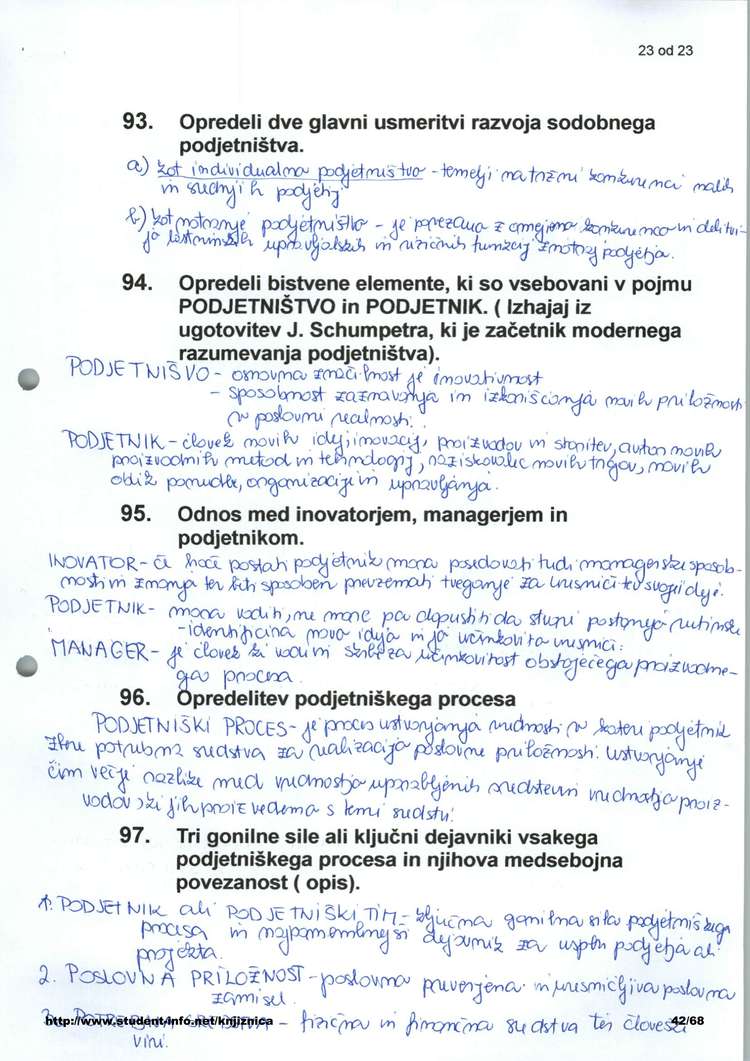 23 od 23
93. Opredeli dve glavni usmeritvi razvoja sodobnega
podjetništva.
a) kot individualno podjetništvo - temelji na tržni konkurenci malih
in srednjih podjetij
b.) kot notranje podjetništvo - je povezano z omejeno konkurenco in delitvi-
jo lastninskih upravljalskih in rizičnih funkcij znotraj podjetja.
94. Opredeli bistvene elemente, ki so vsebovani v pojmu
PODJETNIŠTVO in PODJETNIK. ( Izhajaj iz
ugotovitev J. Schumpetra, ki je začetnik modernega
razumevanja podjetništva).
PODJETNIŠVO - osnovna značilnost je inovativnost
- sposobnost zaznavanja in izkoriščanja novih priložnosti
v poslovni realnosti.
PODJETNIK - človek novih idej, inovacij, proizvodov in storitev, avtor novih
proizvodnih metod in tehnologij, raziskovalec novih trgov, novih
oblik ponudbe, organizacije in upravljanja.
95. Odnos med inovatorjem, managerjem in
podjetnikom.
INOVATOR - če hoče postati podjetnik mora posedovati tudi managerske sposob-
nosti in znanja ter biti sposoben prevzemati tveganje za uresničitev svoje ideje.
PODJETNIK - mora voditi, ne more pa dopustiti da stvari postanejo rutinske
- identificira novo idejo in jo učinkovito uresniči.
MANAGER - je človek ki vodi in skrbi za učinkovitost obstoječega proizvodne-
ga procesa.
96. Opredelitev podjetniškega procesa
PODJETNIŠKI PROCES - je proces ustvarjanja vrednosti v kateri podjetnik
zbere potrebna sredstva za realizacijo poslovne priložnosti. Ustvarjanje
čim večje razlike med vrednostjo uporabljenih sredstev in vrednostjo proiz-
vodov ki jih proizvedemo s temi sredstvi.
97. Tri gonilne sile ali ključni dejavniki vsakega
podjetniškega procesa in njihova medsebojna
povezanost ( opis).
1. PODJETNIK ali PODJETNIŠKI TIM - ključna gonilna sila podjetniškega
procesa in najpomembnejši dejavnik za uspeh podjetja ali
projekta.
2. POSLOVNA PRILOŽNOST - poslovno preverjena in uresničljiva poslovna
zamisel.
- fizična in finančna sredstva ter človeški
viri.
http://www.student-info.net/knjiznica 42/68